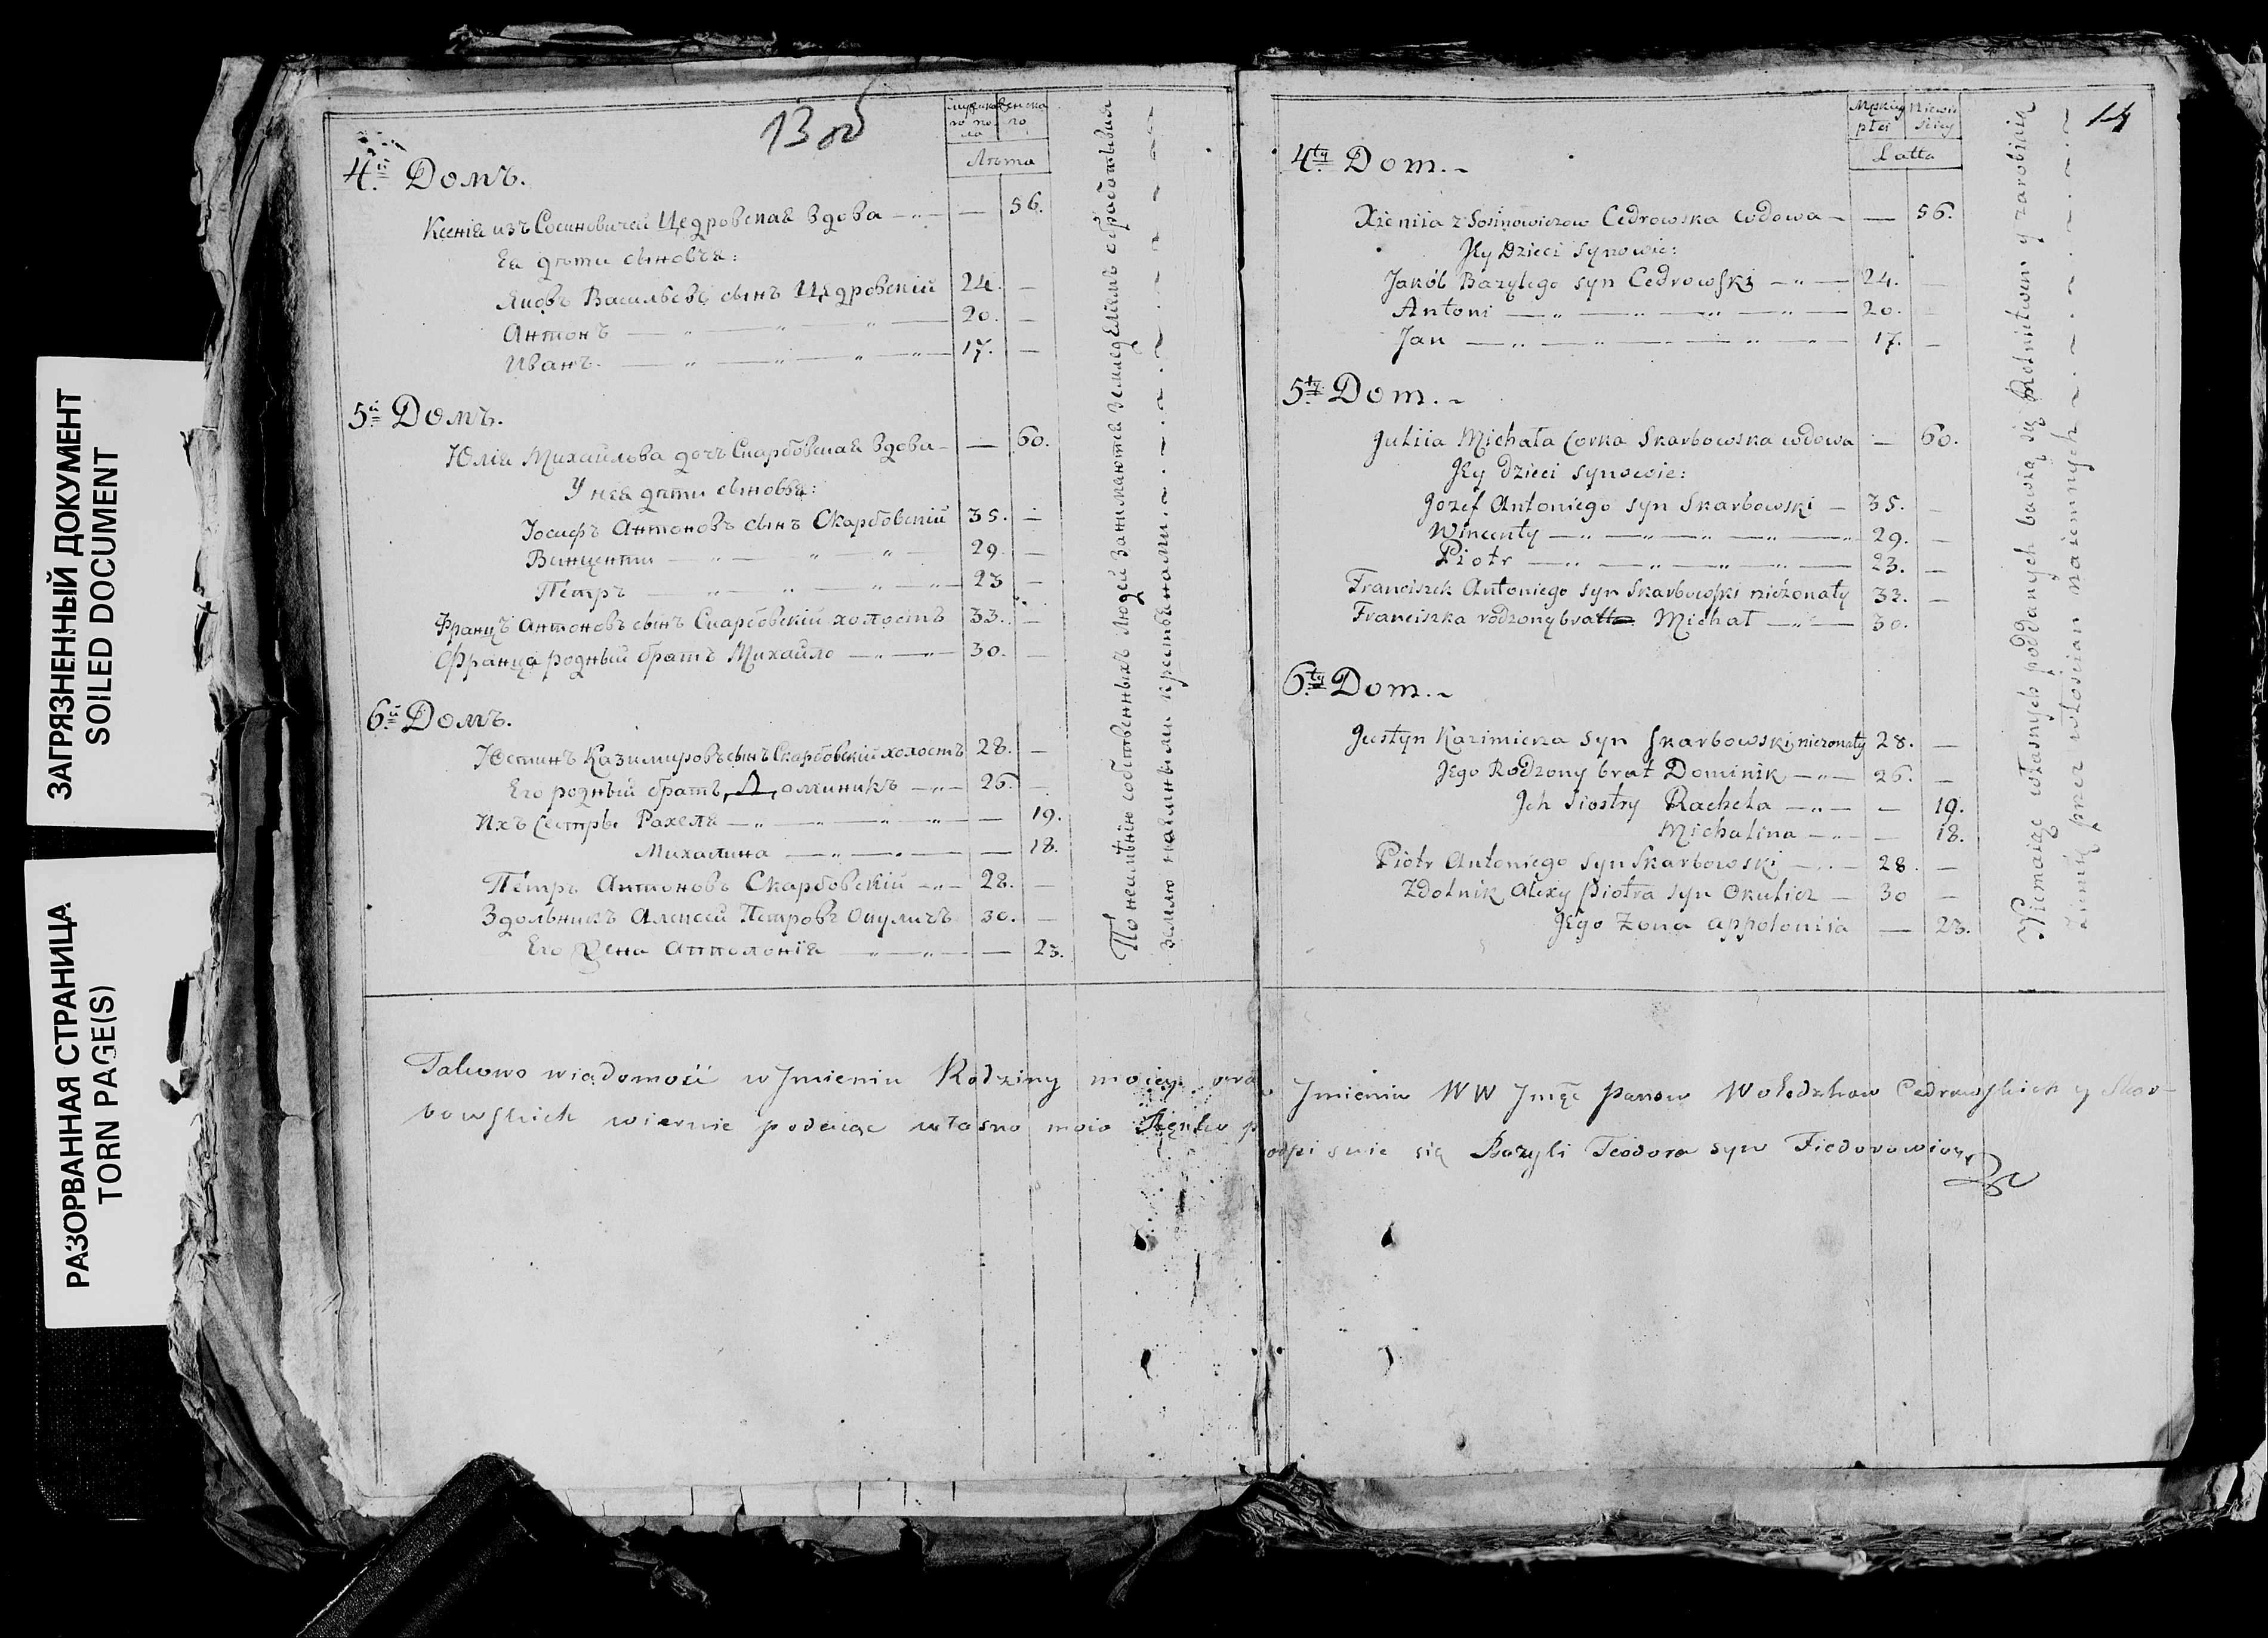 ЗАГРЯЗНЕННЫЙ ДОКУМЕНТ
SOILED DOCUMENT
РАЗОРВАННАЯ СТРАНИЦА
TORN PAGE(S)
13 об
Лѣта
4й Домъ.
Ксенія изъ Сосиновичей Цедровская вдова — 56.
Ея дѣти сыновья:
Яковъ Васильевъ сынъ Цедровскій 24. —
Антонъ — „ — „ — „ — 20. —
Иванъ. — „ — „ — „ — „ — 17. —
5й Домъ.
Юлія Михайлова дочь Скарбовская вдова — — 60.
У нея дѣти сыновья:
Іосифъ Антоновъ сынъ Скарбовскій 35. —
Винценти — „ — „ — „ — 29. —
Пётръ — „ — „ — „ — „ — 23 —
Францъ Антоновъ сынъ Скарбовскій холостъ 33. —
Франца родный братъ Михайло — „ — „ — 30. —
6й Домъ.
Юстинъ Казимировъ сынъ Скарбовскій холостъ 28. —
Его родный братъ Доминикъ — „ — 26. —
Ихъ Сестры Рахеля — „ — „ — „ — „ — — 19.
Михалина — „ — „ — — 18.
Пётръ Антоновъ Скарбовскій — „ — 28. —
Здольникъ Алексей Петровъ Окуличъ 30. —
Его Жена Апполонія — „ — „ — — 23.
По неимѣнію собственныхъ Людей Занимаются Земледеліемъ обработывая
землю наемными крестьянами.
14
płci
Latta
4ty Dom. -
Xieniia z Sosinowiczow Cedrowska wdowa — — 56.
Jey Dzieci synowie:
Jakób Bazylego syn Cedrowski — „ — 24. —
Antoni — „ — „ — „ — „ — 20. —
Jan — „ — „ — „ — „ — 17. —
5ty Dom. -
Juliia Michała Corka Skarbowska wdowa — 60.
Jey dzieci synowie:
Jozef Antoniego syn Skarbowski — 35. —
Wincenty — „ — „ — „ — „ — 29. —
Piotr — „ — „ — „ — „ — 23. —
Franciszek Antoniego syn Skarbowski nieżonaty 33. —
Franciszka rodzony brat Michał — „ — 30.
6ty Dom. -
Justyn Kazimierza syn Skarbowski niezonaty 28. —
Jego Rodzony brat Dominik — „ — 26. —
Jch Siostry Rachela — „ — — 19.
Michalina — „ — — 18.
Piotr Antoniego syn Skarbowski — „ — 28 —
Zdolnik Alexy Piotra syn Okulicz — 30 —
Jego Zona Appoloniia — 23.
Niemaiąc własnych poddanych bawią się Rolnictwem y zarobieniá
ziemię przez włoscian naiemnych
Takowo wiadomość w Jmieniu Rodziny moiey oraz Jmieniu WW Jmęć Panow Wołodzkow Cedrowskich y Skar-
bowskich wiernie podaiąc własno moio Ręnko podpisuie się Bazyli Teodora syn Fiedorowicz